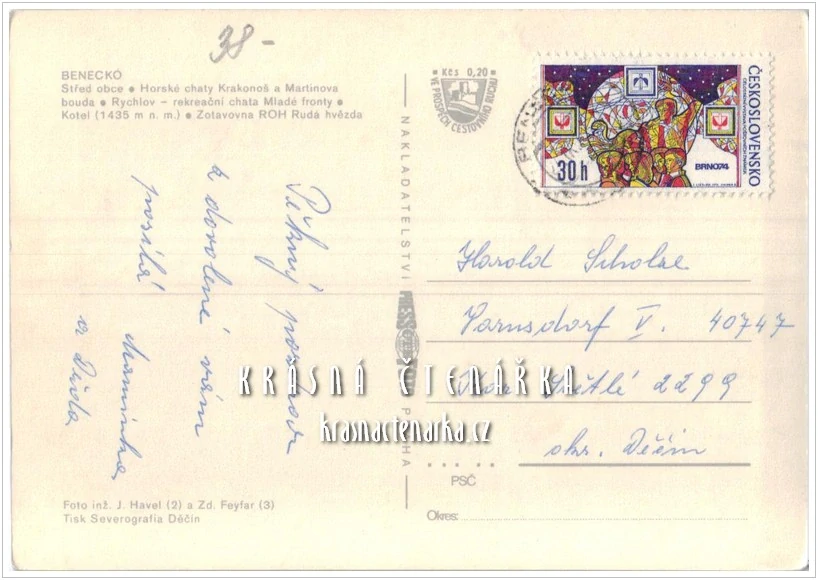 38-
BENECKO
Střed obce ● Horské chaty Krakonoš a Martinova
bouda ● Rychlov – rekreační chata Mladé fronty ●
Kotel (1435 m n. m.) ● Zotavovna ROH Rudá hvězda
Kčs 0,20
VE PROSPĚCH CESTOVNÍHO RUCHU
ČESKOSLOVENSKO
30h
BRNO74
Pěkný pozdrav
z dovolené vám
posílá Maminka
a Děda
NAKLADATELSTVÍ
PRAHA
Harold Scholze
Varnsdorf V. 40747
Světlé 2299
okr. Děčín
KRÁSNÁ ČTENÁŘKA
krasnactenarka.cz
PSČ
Okres:
Foto inž. J. Havel (2) a Zd. Feyfar (3)
Tisk Severografia Děčín